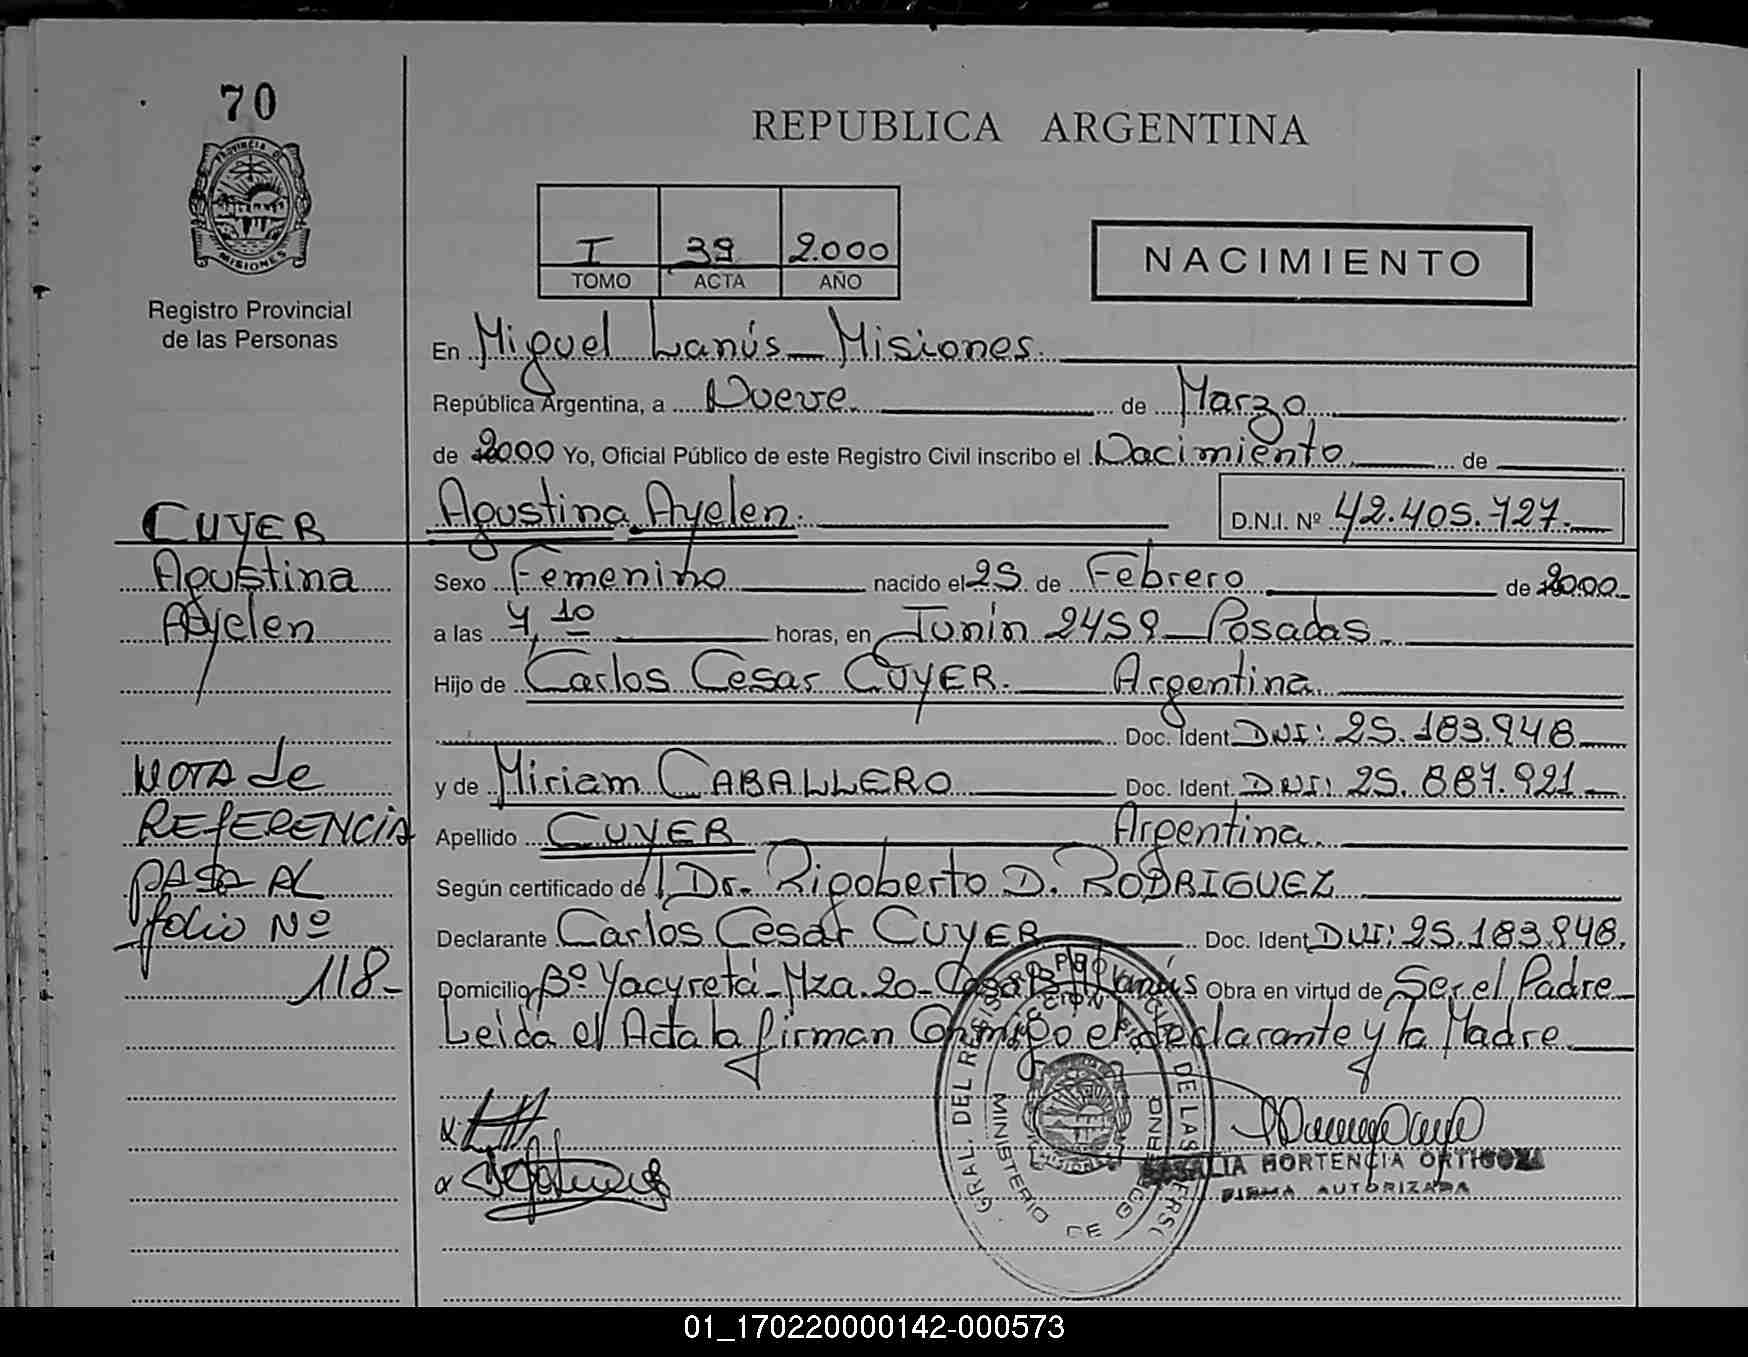 70
PROVINCIA DE
MISIONES
Registro Provincial
de las Personas
REPUBLICA ARGENTINA
I 39 2.000
TOMO ACTA AÑO
NACIMIENTO
En Miguel Lanús - Misiones.
República Argentina, a Nueve de Marzo
de 2000 Yo, Oficial Público de este Registro Civil inscribo el Nacimiento de
Agustina Ayelen. D.N.I. Nº 42.405.727.
CUYER
Agustina
Ayelen
Sexo Femenino nacido el 25 de Febrero de 2000
a las 4,10 horas, en Junín 2459 - Posadas.
Hijo de Carlos Cesar CUYER. Argentina
Doc. Ident DNI: 25.183.948
y de Miriam CABALLERO Doc. Ident. DNI: 25.887.921
Apellido CUYER Argentina.
Según certificado de Dr. Rigoberto D. RODRIGUEZ
Declarante Carlos Cesar CUYER Doc. Ident DNI: 25.183.948.
Domicilio Bº Yacyretá - Mza. 20 - Casa Lanús Obra en virtud de Ser el Padre
Leida el Acta la firman Conmigo el declarante y la Madre
NOTA de
REFERENCIA
PASA AL
folio Nº
118-
GRAL. DEL REGISTRO PROVINCIAL DE LAS PERSO
MINISTERIO DE GOBIERNO
MISIONES
HORTENCIA ORTIGOZA
FIRMA AUTORIZADA
01_170220000142-000573